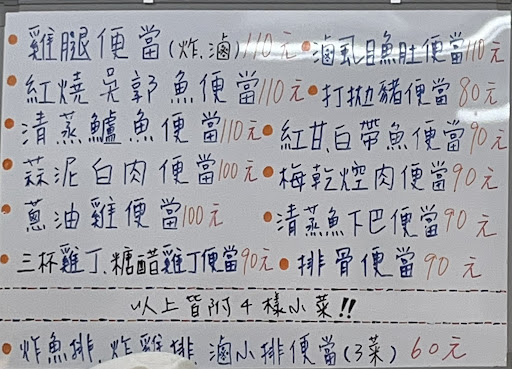 雞腿便當(炸.滷)110元
滷虱目魚肚便當110元
紅燒吳郭魚便當110元
打拋豬便當80元
清蒸鱸魚便當110元
紅甘.白帶魚便當90元
蒜泥白肉便當100元
梅乾焢肉便當90元
蔥油雞便當100元
清蒸魚下巴便當90元
三杯雞丁.糖醋雞丁便當90元
排骨便當90元
以上皆附4樣小菜!!
炸魚排.炸雞排.滷小排便當(3菜) 60元